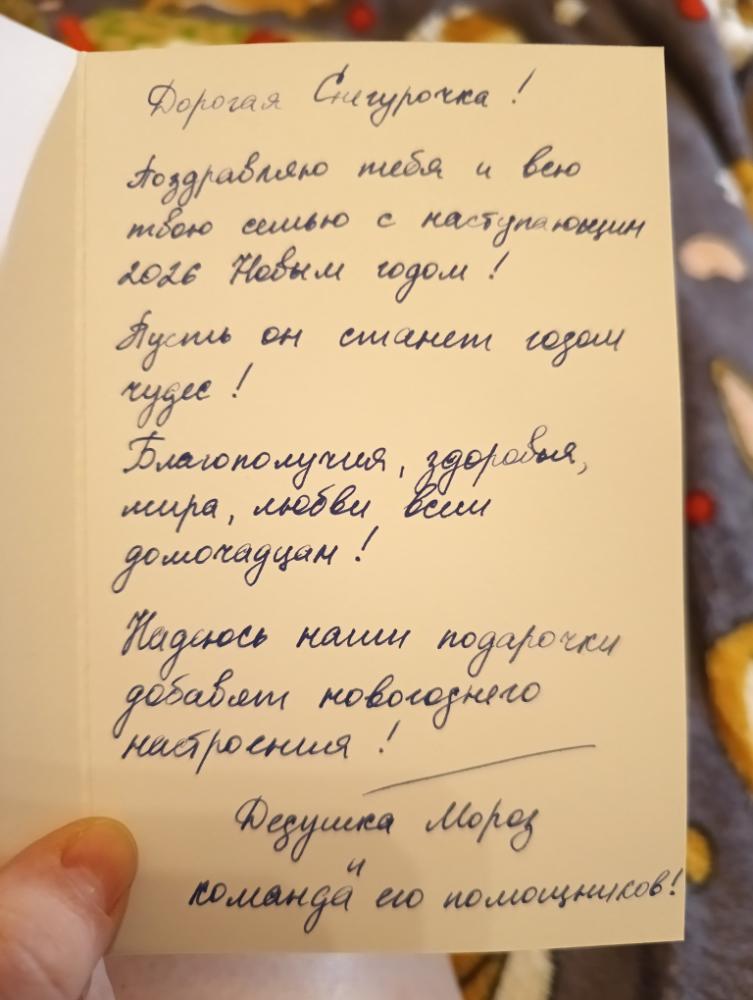 Дорогая Снегурочка!
Поздравляю тебя и всю
твою семью с наступающим
2026 Новым годом!
Пусть он станет годом
чудес!
Благополучия, здоровья,
мира, любви всем
домочадцам!
Надеюсь наши подарочки
добавят новогоднего
настроения!
Дедушка Мороз
и
команда его помощников!